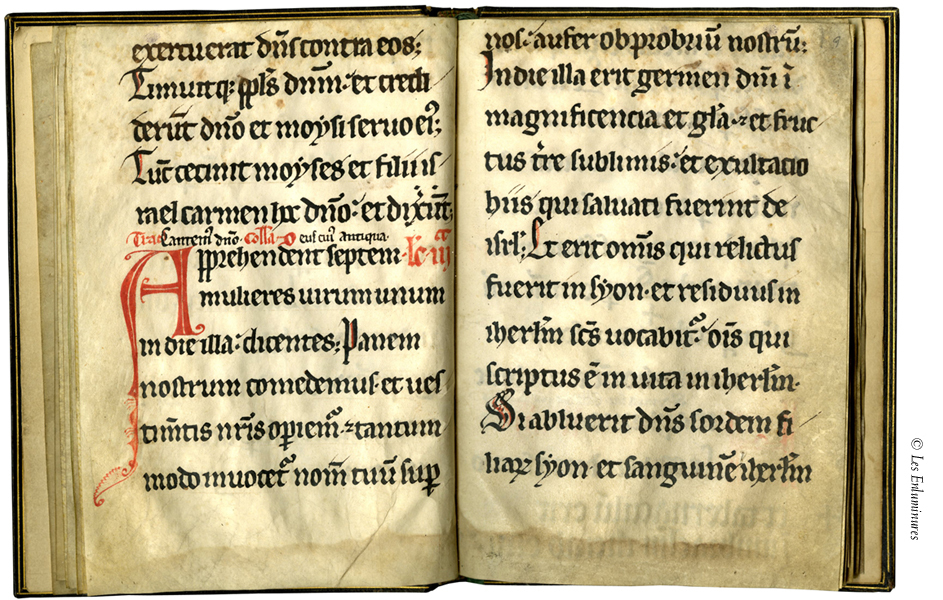 exercuerat dñs contra eos;
Timuitq; ppl̃s dñm. et credi
derũt dño et moysi seruo ei';
Tũc cecinit moyses et filii is
rael carmen hoc dño: et dixer̃t;
Trac Cantem' dño. Coll̃a D eus cui' antiqua. lc̃ iiii
Apprehendent septem
mulieres uirum unum
in die illa: dicentes; Panem
nostrum comedemus. et ues
tim̃tis nr̃is opiem̃. ⁊ tantum
modo inuocet̃ nom̃ tuũ sup̲
nos: aufer obprobriũ nostrũ;
In die illa erit germen dñi ĩ
magnificencia et gl̃a. et fruc
tus tr̃e sublimis: et exultacio
hiis qui saluati fuerint de
isrl̃; Et erit omñis qui relictus
fuerit in syon. et residuus in
iherl̃m sc̃s uocabit̃: oĩs qui
scriptus ẽ in uita in iherl̃m.
Si abluerit dñs sordem fi
liaꝝ syon. et sanguinẽ iherl̃m
© Les Enluminures